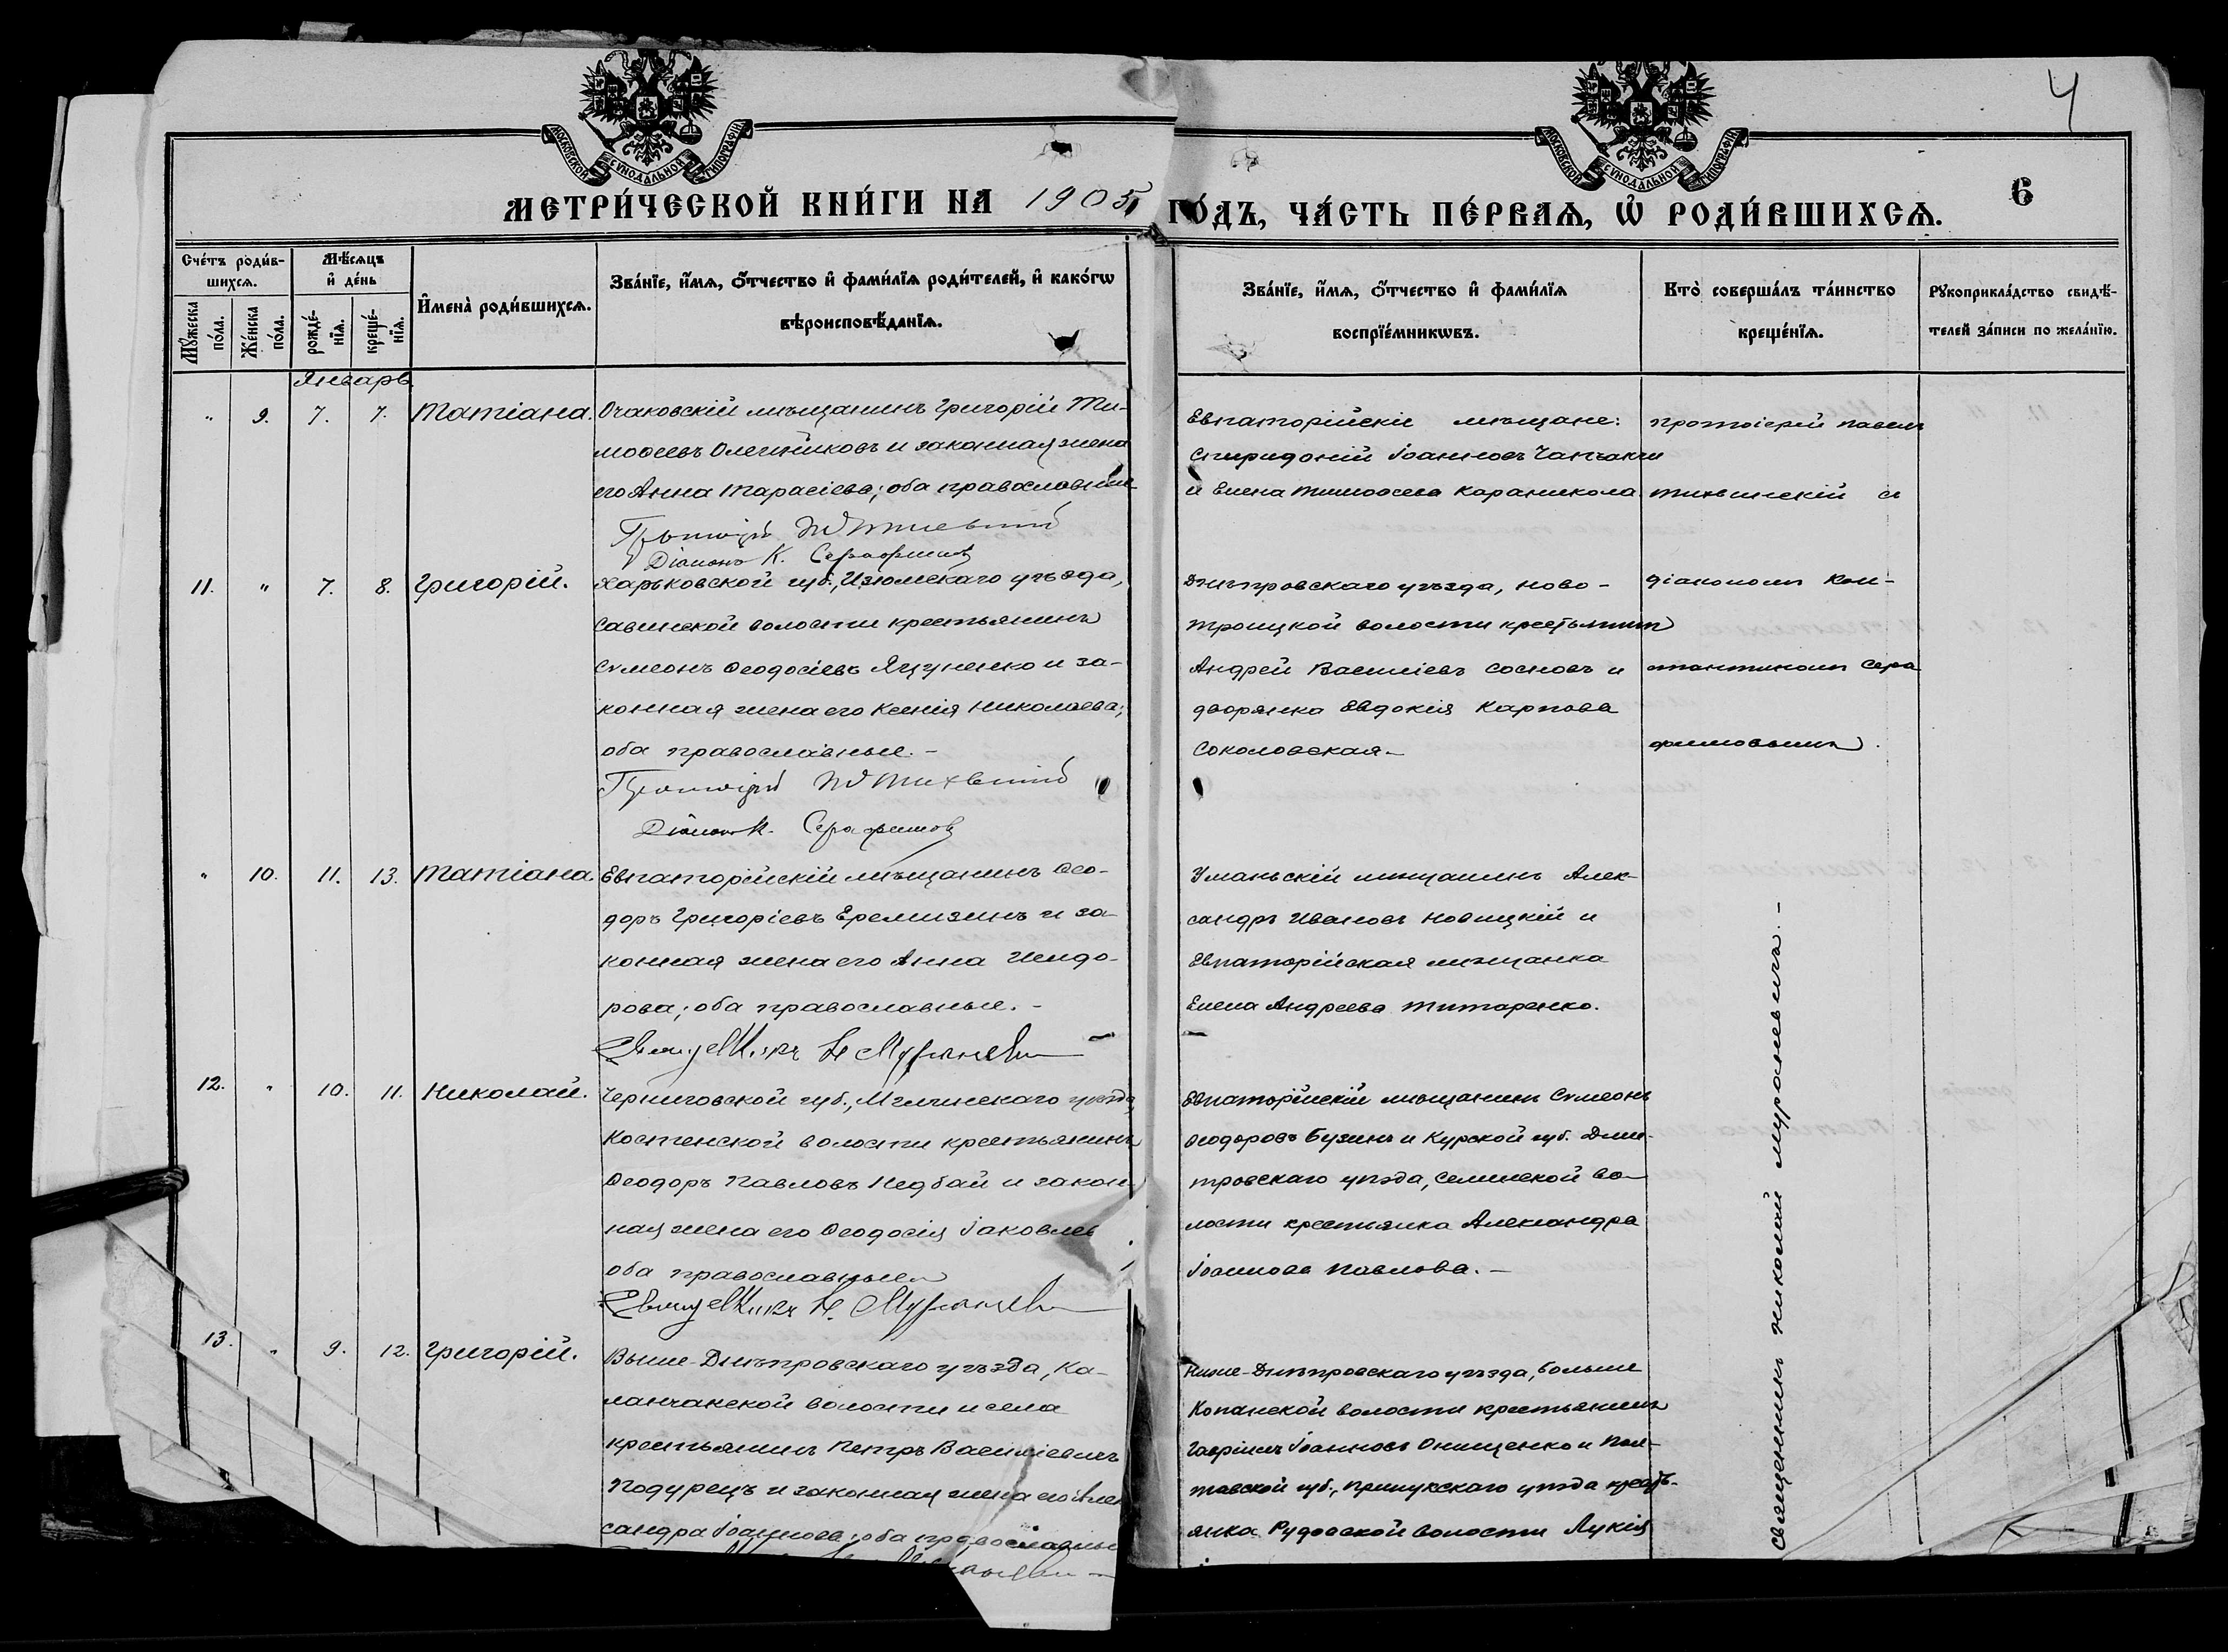 4
МОСКОВСКОЙ СУНОДАЛЬНОЙ ТИПОГРАФІИ
МОСКОВСКОЙ СУНОДАЛЬНОЙ ТИПОГРАФІИ
МЕТРИ́ЧЕСКОЙ КНИ́ГИ НА 1905 ГО́ДЪ, ЧА́СТЬ ПЕ́РВАѦ, Ѡ҆ РОДИ́ВШИХСѦ.
6
Сче́тъ роди́в-
шихсѧ.
Мꙋ́жеска по́ла.
Же́нска по́ла.
Мѣ́сѧцъ
и҆ де́нь
рожде́-
нїѧ.
креще́-
нїѧ.
И҆мена̀ роди́вшихсѧ.
Зва́нїе, и҆́мѧ, ѻ҆́тчество и҆ фами́лїѧ роди́телей, и҆ како́гѡ
вѣроисповѣ́данїѧ.
Зва́нїе, и҆́мѧ, ѻ҆́тчество и҆ фами́лїѧ
воспрїе́мникѡвъ.
Кто̀ соверша́лъ та́инство
креще́нїѧ.
Рꙋкоприкла́дство свидѣ́-
телей за́писи по жела́нїю.
Январь
" 9. 7. 7. Татіана.
Очаковскій мѣщанинъ Григорій Ти-
моѳеевъ Олейниковъ и законная жена
его Анна Тарасіева; оба православные
Протоіерей П Тихвинскій
Діаконъ К. Серафимовъ
Евпаторійскіе мѣщане:
Спиридоній Іоанновъ
и Елена Тимоѳеева Караникола
Протоіерей Павелъ
Тихвинскій и
11. " 7. 8. Григорій.
Харьковской губ., Изюмскаго уѣзда,
Савинской волости крестьянинъ
Сѵмеонъ Ѳеодосіевъ Яцуненко и за-
конная жена его Ксенія Николаева;
оба православные.-
Протоіерей П Тихвинскій
Діаконъ К. Серафимовъ
Днѣпровскаго уѣзда, Ново-
троицкой волости крестьянинъ
Андрей Василіевъ Сосновъ и
дворянка Евдокія Карпова
Соколовская-
діакономъ Кон-
стантиномъ Сера
фимовымъ.
" 10. 11. 13. Татіана.
Евпаторійскій мѣщанинъ Ѳео-
доръ Григоріевъ Еремизинъ и за-
конная жена его Анна Исидо-
рова; оба православные.-
Священникъ Н Мураневичъ
Уманьскій мѣщанинъ Алек-
сандръ Ивановъ Новицкій и
Евпаторійская мѣщанка
Елена Андреева Титаренко.
12. " 10. 11. Николай.
Черниговской губ., Мглинскаго уѣзда,
Костенской волости крестьянинъ
Ѳеодоръ Павловъ Недбай и закон-
ная жена его Ѳеодосія Іаковлев
оба православные
Священникъ Н. Мураневичъ
Евпаторійскій мѣщанинъ Сѵмеонъ
Ѳеодоровъ Бузинъ и Курской губ. Дми-
тровскаго уѣзда, Селинской во-
лости крестьянка Александра
Іоаннова Павлова.-
13. " 9. 12. Григорій.
Выше-Днѣпровскаго уѣзда, Ка-
ланчакской волости и села
крестьянинъ Петръ Василіевичъ
Подурецъ и законная жена его Алек
сандра Іоаннова; оба православные
Ниже-Днѣпровскаго уѣзда, Больше
Копанской волости крестьянинъ
Гавріилъ Іоанновъ Онищенко и Пол-
тавской губ., Прилукскаго уѣзда кресть-
янка Рудовской волости Лукія
Священникъ Николай Мураневичъ.-